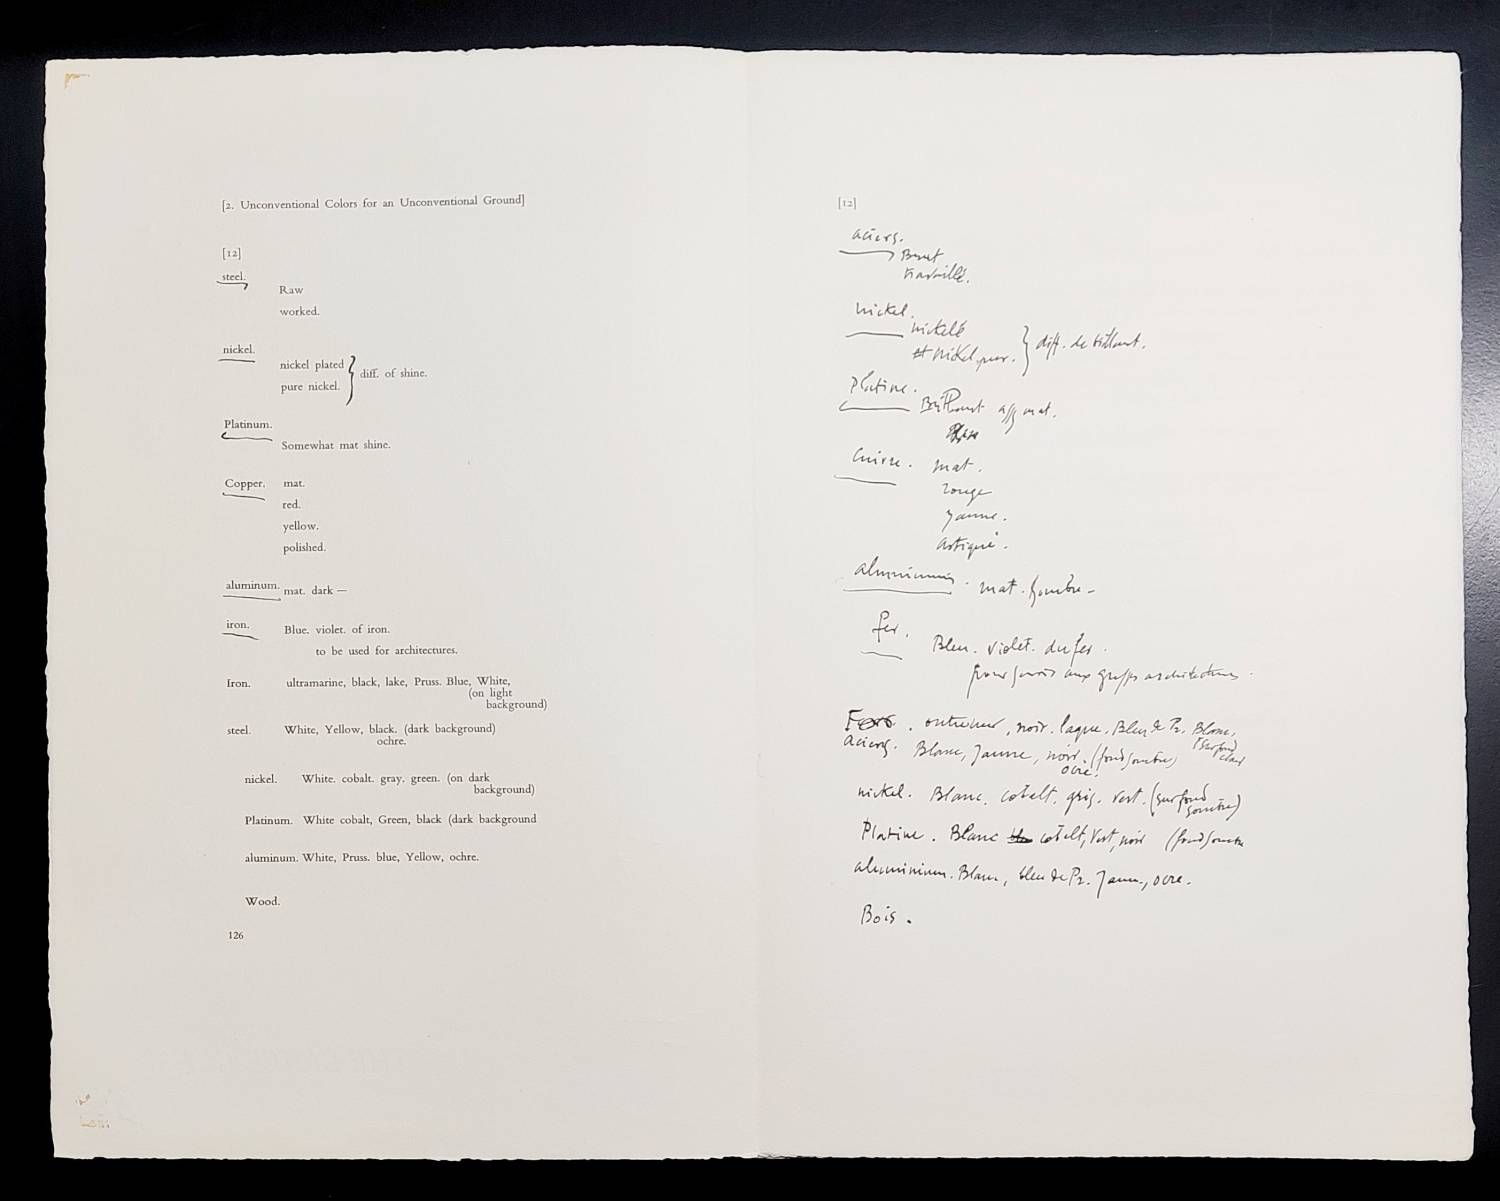 [2. Unconventional Colors for an Unconventional Ground]
[12]
steel.
Raw
worked.
nickel.
nickel plated
pure nickel.
diff. of shine.
Platinum.
Somewhat mat shine.
Copper. mat.
red.
yellow.
polished.
aluminum. mat. dark —
iron. Blue. violet. of iron.
to be used for architectures.
Iron. ultramarine, black, lake, Pruss. Blue, White,
(on light
background)
steel. White, Yellow, black. (dark background)
ochre.
nickel. White. cobalt. gray. green. (on dark
background)
Platinum. White cobalt, Green, black (dark background
aluminum. White, Pruss. blue, Yellow, ochre.
Wood.
126
[12]
aciers.
Brut
travaillé.
nickel.
nickelé
et nickel pur.
diff. de brillant.
Platine.
Brillant ass mat.
Cuivre. mat.
rouge
jaune.
astiqué.
aluminium. mat. sombre —
fer.
Bleu. violet. du fer.
pour architectures.
Fers. outremer, noir. laque. Bleu de Pr. Blanc,
(sur fond
clair
aciers. Blanc, Jaune, noir. (fond sombre)
ocre.
nickel. Blanc. cobalt. gris. vert. (sur fond
sombre)
Platine. Blanc cobalt, Vert, noir (fond sombre
aluminium. Blanc, bleu de Pr. Jaune, ocre.
Bois.